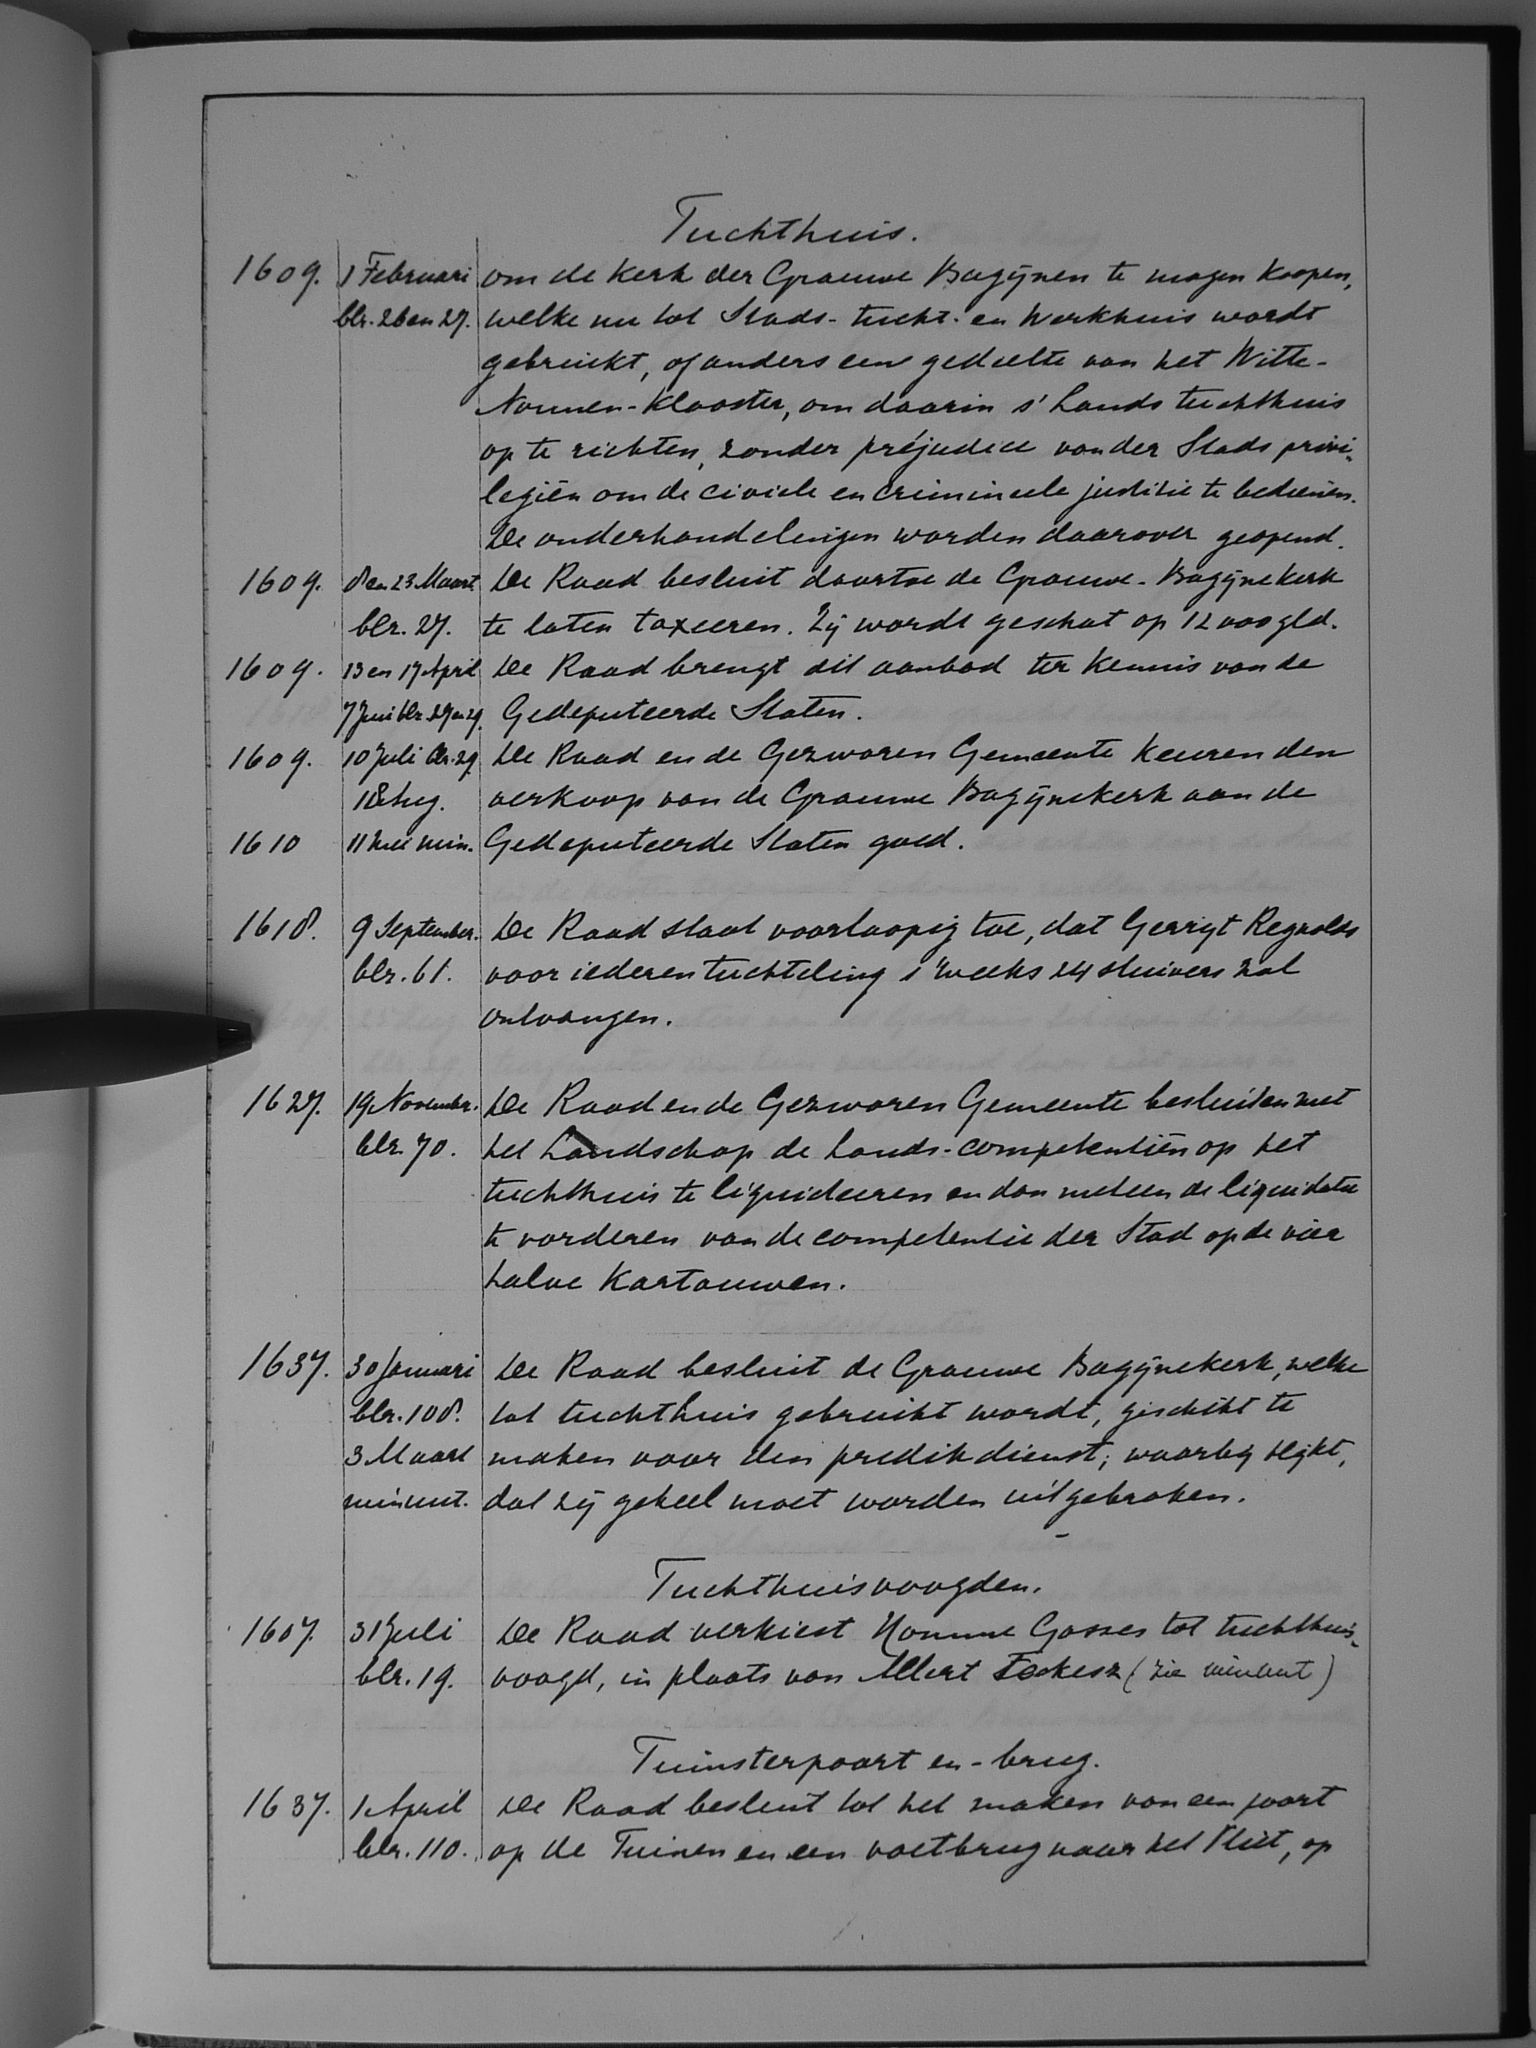 Tuchthuis.
1609. 1 Februari om de Kerk der Grauwe Bagijnen te mogen koopen,
blz. 26 en 27. welke nu tot Stads-tucht- en Werkhuis wordt
gebruikt, of anders een gedeelte van het Witte-
Nonnen-Klooster, om daarin s' Lands tuchthuis
op te richten, zonder préjudice van der Stads privi-
legiën om de civiele en crimineele justitie te bedienen.
De onderhandelingen worden daarover geopend.
1609. 8 en 23 Maart De Raad besluit daartoe de Grauwe-Bagijnekerk
blz. 27. te laten taxeeren. Zij wordt geschat op 1200 gld.
1609. 13 en 17 April De Raad brengt dit aanbod ter kennis van de
7 Juni blz. 27 en 29. Gedeputeerde Staten.
1609. 10 Juli blz. 29. De Raad en de Gezworen Gemeente keuren den
18 Aug. verkoop van de Grauwe Bagijnekerk aan de
1610 11 Mei min. Gedeputeerde Staten goed.
1618. 9 September. De Raad staat voorloopig toe, dat Gerrijt Reynolds
blz. 61. voor iederen tuchteling s' weeks 24 stuivers zal
ontvangen.
1627. 19 Novembr. De Raad en de Gezworen Gemeente besluiten met
blz. 70. het Landschap de Lands-competentiën op het
tuchthuis te liquideeren en dan meteen de liquidatie
te vorderen van de competentie der Stad op de vier
halve Kartouwen.
1637. 30 Januari De Raad besluit de Grauwe Bagijnekerk, welke
blz. 108. tot tuchthuis gebruikt wordt, geschikt te
3 Maart maken voor den predikdienst; waarbij blijkt,
minuut. dat zij geheel moet worden uitgebroken.
Tuchthuisvoogden.
1607. 31 Juli De Raad verkiest Nomme Gosses tot tuchthuis-
blz. 19. voogd, in plaats van Allert Fockesz (zie minuut)
Tuinsterpoort en -brug.
1637. 1 April De Raad besluit tot het maken van een poort
blz. 110. op de Tuinen en een voetbrug naar het Vliet, op